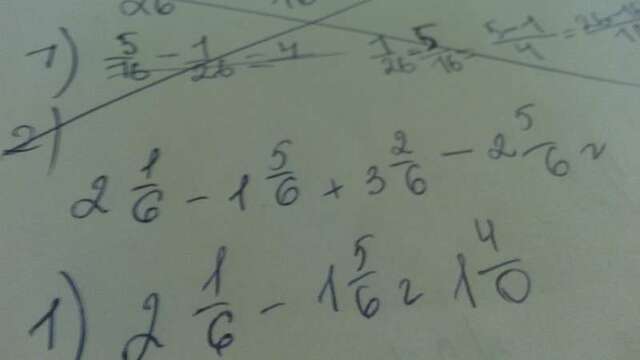 26 16
1) 5/16 - 1/26 = 4 1/26 - 5/16 = 5-1/4 =
2)
2 1/6 - 1 5/6 + 3 2/6 - 2 5/6 =
1) 2 1/6 - 1 5/6 = 1 4/0